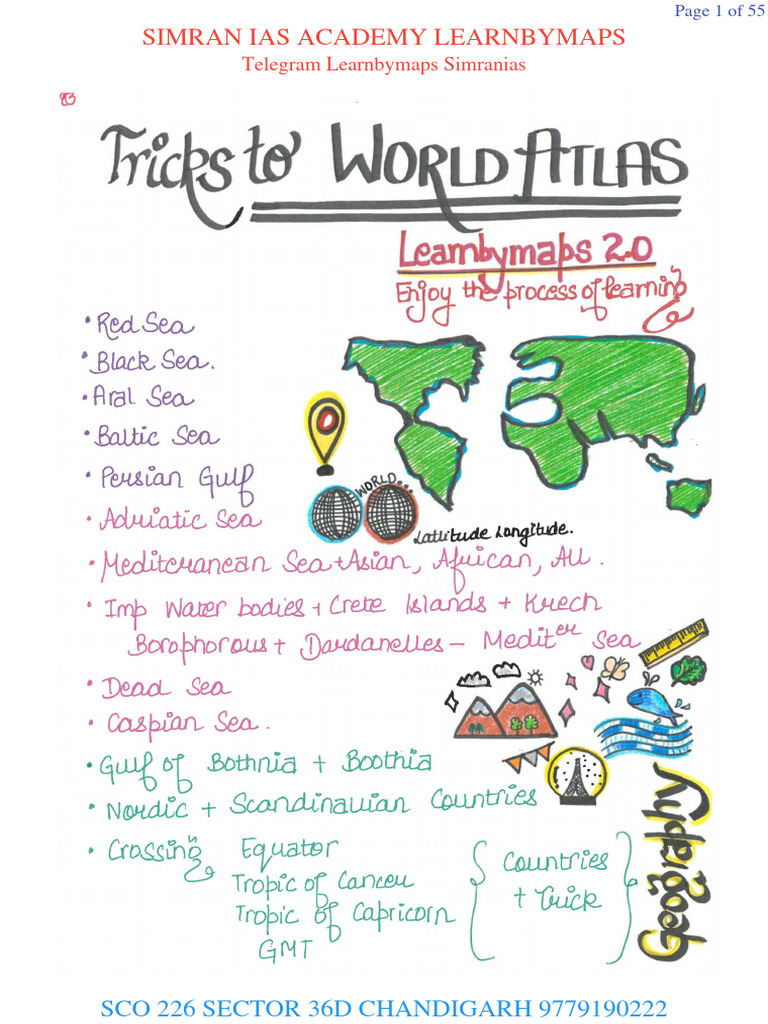 Page 1 of 55
SIMRAN IAS ACADEMY LEARNBYMAPS
Telegram Learnbymaps Simranias
Tricks to WORLD ATLAS
Learnbymaps 2.0
Enjoy the process of learning
• Red Sea
• Black Sea.
• Aral Sea
• Baltic Sea
• Persian Gulf
WORLD...
• Adriatic Sea
Latitude Longitude.
• Mediterranean Sea + Asian, African, All.
• Imp Water bodies + Crete Islands + Krech
Borophorous + Dardanelles – Medit er Sea
• Dead Sea
• Caspian Sea.
• Gulf of Bothnia + Boothia
• Nordic + Scandinavian Countries
• Crossing Equator
Tropic of Cancer
Tropic of Capricorn
GMT
Countries
+ Trick
Geography
SCO 226 SECTOR 36D CHANDIGARH 9779190222